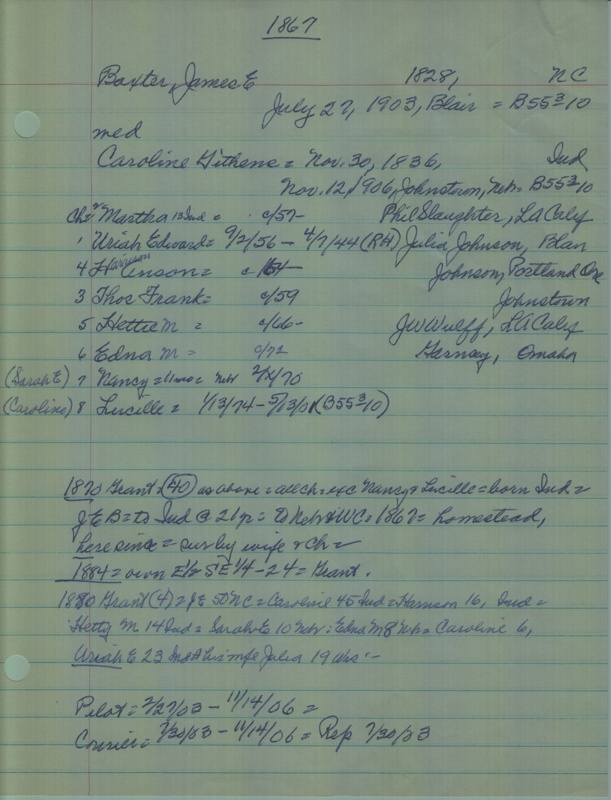 1867
Baxter, James E 1828, NC
July 27, 1903, Blair = B55 3 10
med
Caroline Githens = Nov. 30, 1836, Ind
Nov. 12, 1906, Johnstown, Neb = B55 3 10
Ch = 2 Martha 13 Ind = c/57 - Phil Slaughter, LA Calif
1 Uriah Edward = 9/2/56 - 4/7/44 (RH) Julia Johnson, Blair
4 Harrison = c/64 Johnson, Portland Ore
3 Thos Frank = c/59 Johnstown
5 Hettie M = c/66 - JW Wulff, LA Calif
6 Edna M = c/72 Garnsey, Omaha
(Sarah E) 7 Nancy = 11 mo = Neb 2/ /70
(Caroline) 8 Lucille = 1/13/74 - 5/13/01 (B55 3 10)
1870 Grant = (40) as above = all ch = exc Nancy & Lucille = born Ind =
J E B = to Ind @ 21 yr = to Neb & WC = 1867 = homestead,
here since = sur by wife & ch =
1884 = own E 1/2 SE 1/4 - 24 = Grant.
1880 Grant (4) = JE 50 NC = Caroline 45 Ind = Harrison 16, Ind =
Hetty M 14 Ind = Sarah E 10 Neb = Edna M 8 Neb = Caroline 6,
Uriah E 23 Ind & his wife Julia 19 Wis -
Pilot = 2/27/03 - 11/14/06 =
Courier = 7/30/03 - 11/14/06 = Rep 7/30/03